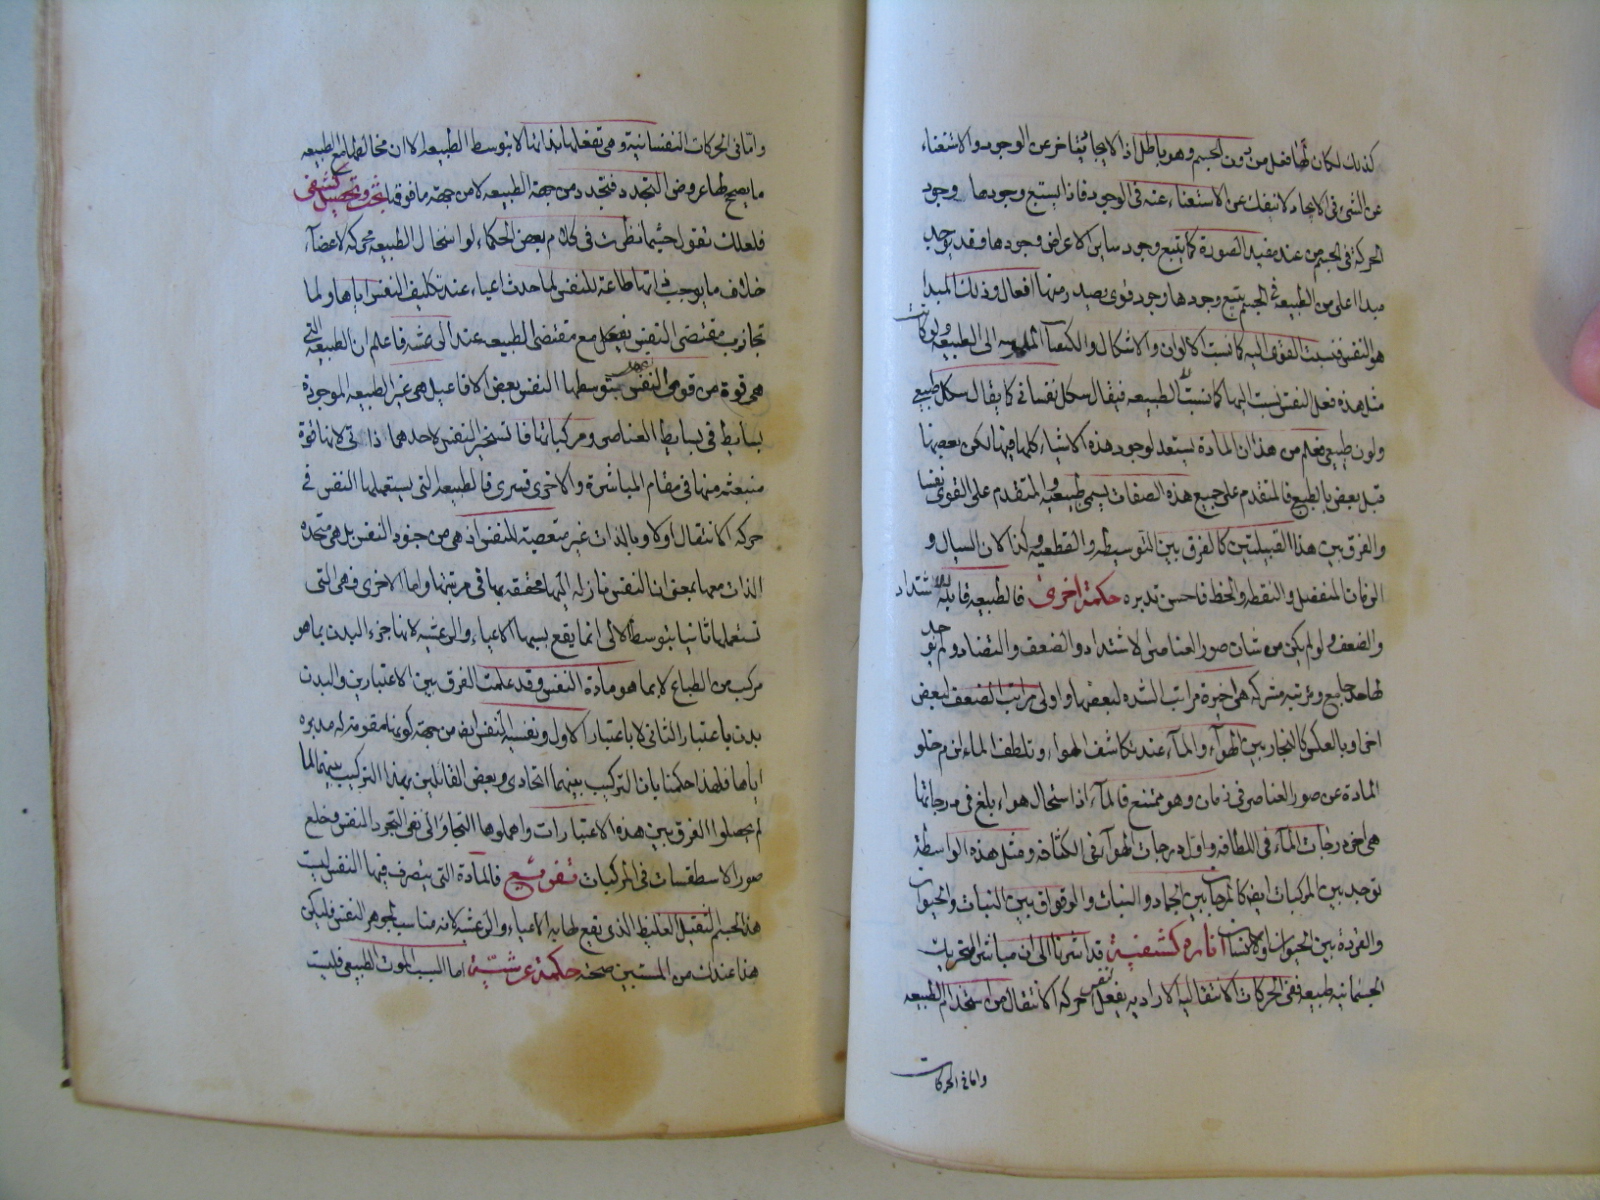 كذلك لكان لها فعل من دون الجسم وهو باطل اذ الايجاد متاخر عن الوجود والاستغناء
عن الشئ فى الايجاد لا ينفك عن الاستغناء عنه فى الوجود فاذا يستتبع وجودها وجود
الحركة فى الجسم من عند مفيد الصورة كما يتبع وجود ساير الاعراض وجودها وقد يوجد
مبدا اعلى من الطبيعة فى الجسم يتبع وجودها وجود قوى يصدر منها افعال وذلك المبدا
هو النفس فنسبت القوى اليه كما نسبت الالوان والاشكال والكيفيات الملموسه الى الطبيعه ولو كانت
مثل هذه فعل النفس نسبت اليها كما نسبت الطبيعه فيقال شكل نفسانى كما يقال شكل طبيعى
ولون طبيعى فعلم من هذا ان المادة يستعد لوجود هذه الاشياء كلها فيها لكن بعضها
قبل بعض بالطبع فالمتقدم على جميع هذه الصفات يسمى طبيعة والمتقدم على القوى نفسا
والفرق بين هذا القبيلتين كالفرق بين التوسيطيه والقطعيه وكذا الان السيال و
الزمان المنفصل والنقطه والخط فاحسن تدبره حكمة اخرى فالطبيعه قابلة للاشتداد
والضعف ولو لم يكن من شان صور العناصر الاشتداد والضعف والتضاد ولم يوجد
لها حد جامع ومرتبه مشتركه هى اخيرة مراتب الشده لبعضها واولى مراتب الضعف لبعض
اخر او بالعكس كالبخار بين الهوآء والمآء عند تكاشف الهواء وتلطف الماء لزم خلو
المادة عن صور العناصر فى زمان وهو ممتنع فالمآء اذا استحال هواء بلغ فى درجاتها
هى اخر درجات المآء فى اللطافه واول درجات الهوآء فى الكثافه ومثل هذه الواسطة
توجد بين المركبات ايضا كالمرجان بين الجماد والنبات والوقواق بين النبات والحيوان
والقردة بين الحيوان والانسان انارة كشفية قد اشرنا الى ان مباشر التحريك
الجسمانيه طبيعه ففى الحركات الانتقاليه الاراديه يفعل النفس حركه الانتقال من استخدام الطبيعه
واما فى الحركات
واما فى الحركات النفسانية وهى تفعلها بذاتها لا بتوسط الطبيعه الا ان مخالطها مع الطبيعه
ما يصح لها عروض التجدد فتجدد من جهة الطبيعه لا من جهة ما فوقها بحث وتحصيل كشفى
فلعلك تقول حسبما نظرت فى كلام بعض الحكماء لو استحال الطبيعه محركه لاعضآء
خلاف ما يوجب ذاتها طاعة للنفس لما حدث اعياء عند تكليف النفس اياها ولما
تجاذب مقتضى النفس بفعل مع مقتضى الطبيعه عند الرعشه فاعلم ان الطبيعه التى
هى قوة من قوى النفس بتوسطها النفس بعض الافاعيل هى غير الطبيعه الموجودة
بسايط فى بسايط العناصر ومركباتها فان تسخير النفس لاحدهما ذاتى لانها قوة
منبعثه منها فى مقام المباشرة والاخرى قسرى فالطبيعه التى يستعملها النفس فى
حركه الانتقال اولا وبالذات غير متعصية للنفس اذ هى من جنود النفس بل هى متحده
الذات معها بمعنى ان النفس نازله اليها محققه بها فى مرتبتها واما الاخرى فهى التى
تستعملها ثانيا بتوسط الاولى انما يقع بسببها الاعياء والرعشه لانها جزء البدن بما هو
مركب من الطبائع لا بما هو مادة النفس وقد علمت الفرق بين الاعتبارين والبدن
بدن باعتبار الثانى لا باعتبار الاول ونفسيه النفس ايضا من جهة كونها مقومة له مدبره
اياها فلهذا حكمنا بان التركيب بينهما اتحادى وبعض القائلين بهذا التركيب بينهما لما
لم يحصلوا الفرق بين هذه الاعتبارات واهملوها التجاوا الى نفى التجرد النفس وخلع
صور الاسطقسات فى المركبات تفريع فالمادة التى يتصرف فيها النفس ليست
هذا الجسم الثقيل الغليظ الذى يقع لها به الاعياء والرعشه لانه مناسب لجوهر النفس فليكن
هذا عندك من المتبين صحته حكمة عرشيّة اما السبب الموت الطبيعى فليست